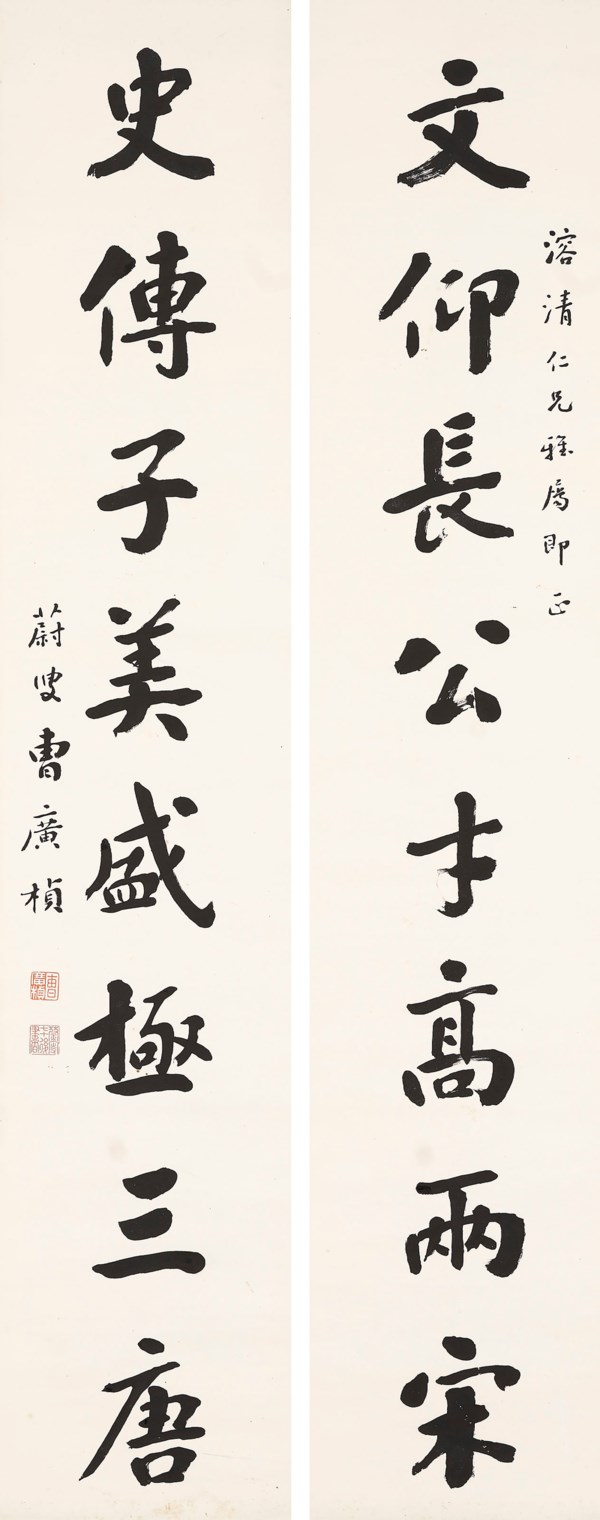 溶清仁兄雅属即正
文仰長公才高兩宋
史傳子美盛極三唐
蔚叟曹廣楨